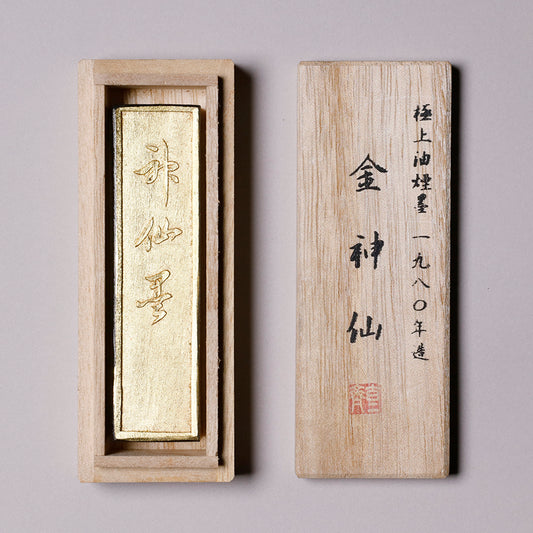 神仙墨
極上油煙墨 一九八〇年造
金神仙